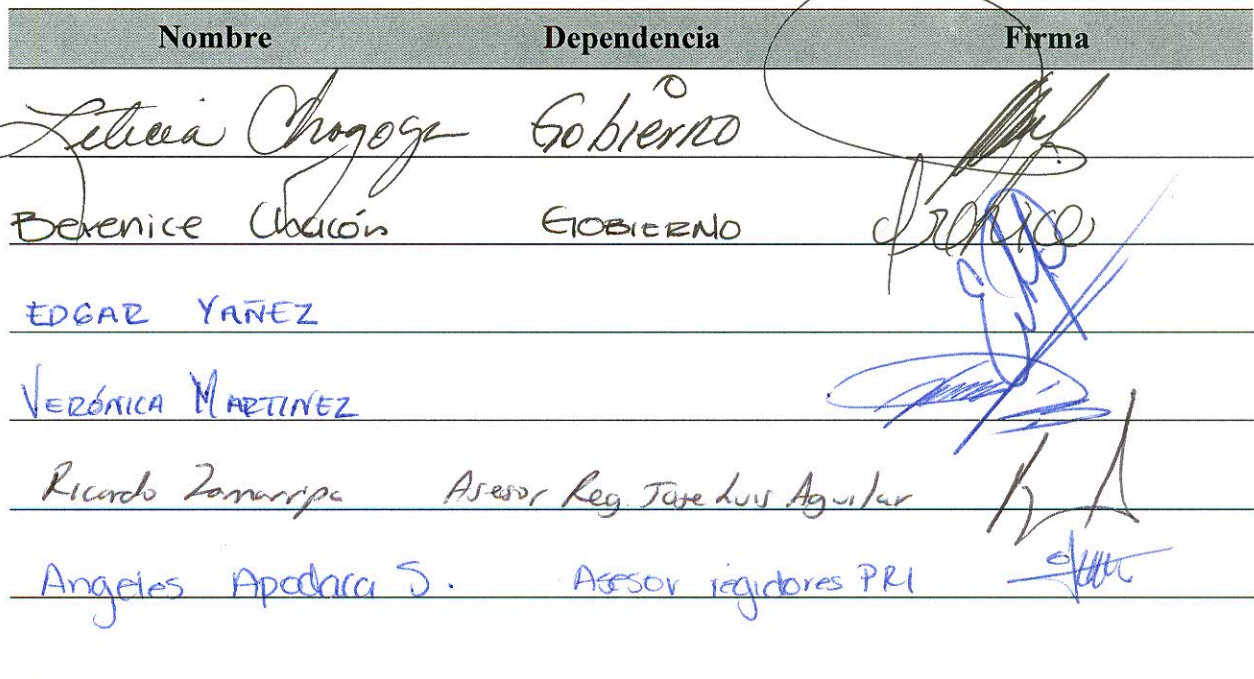 Nombre Dependencia Firma
Leticia Chogoya Gobierno
Berenice Chacón GOBIERNO
EDGAR YAÑEZ
VERÓNICA MARTINEZ
Ricardo Zamarripa Asesor Reg. Jose Luis Aguilar
Angeles Apodaca S. Asesor regidores PRI